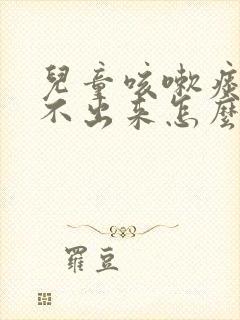 兒童咳嗽痰
不出來怎麼
羅豆